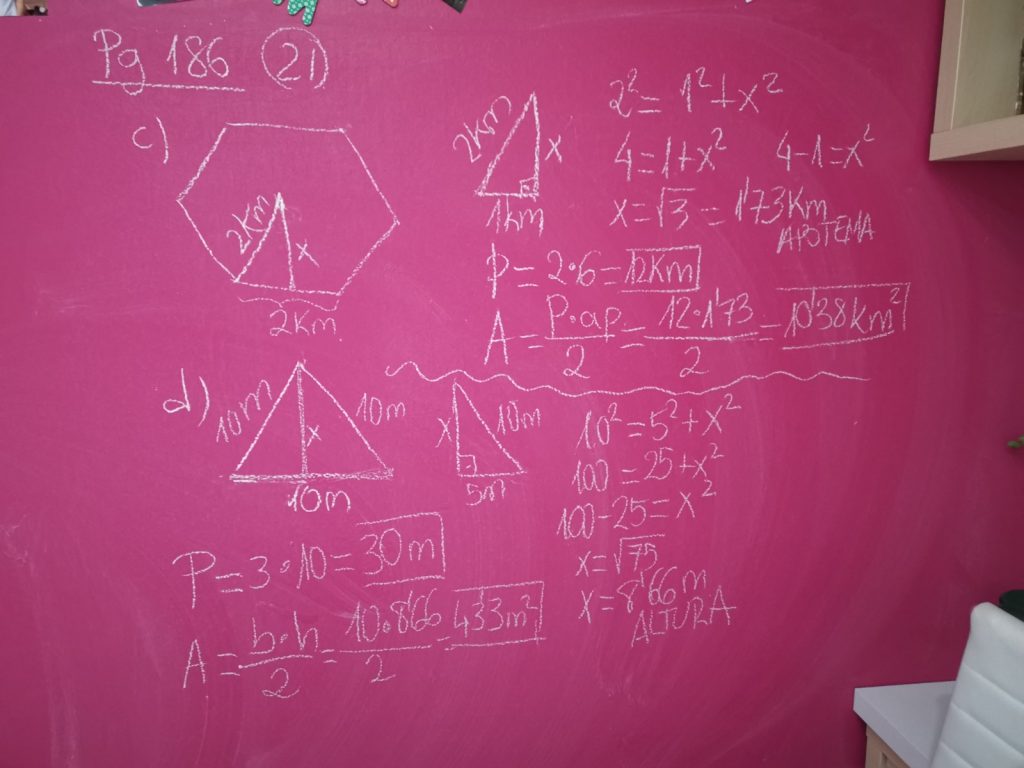 Pg 186 (21)
c)
2Km
x
2Km
2Km
x
1Km
2² = 1² + x²
4 = 1 + x²  4 - 1 = x²
x = √3 = 1'73 Km
APOTEMA
P = 2·6 = 12Km
A = P·ap / 2 = 12·1'73 / 2 = 10'38 km²
d)
10m
x
10m
10m
x
10m
5m
10² = 5² + x²
100 = 25 + x²
100 - 25 = x²
x = √75
x = 8'66 m
ALTURA
P = 3·10 = 30m
A = b·h / 2 = 10·8'66 / 2 = 43'3 m²